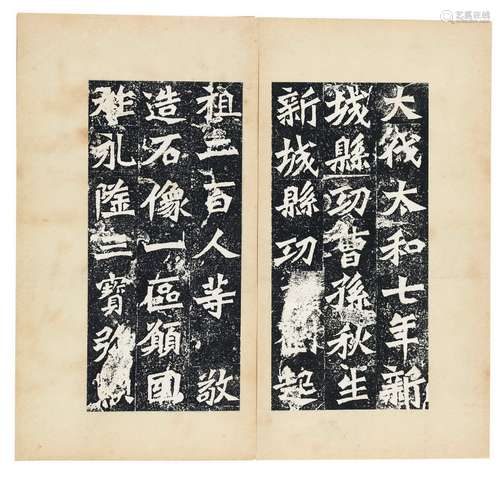 大伐太和七年新
城縣功曹孫秋生
新城縣功起
祖二百人等敬
造石像一區願國
祚永隆三寶彌顯